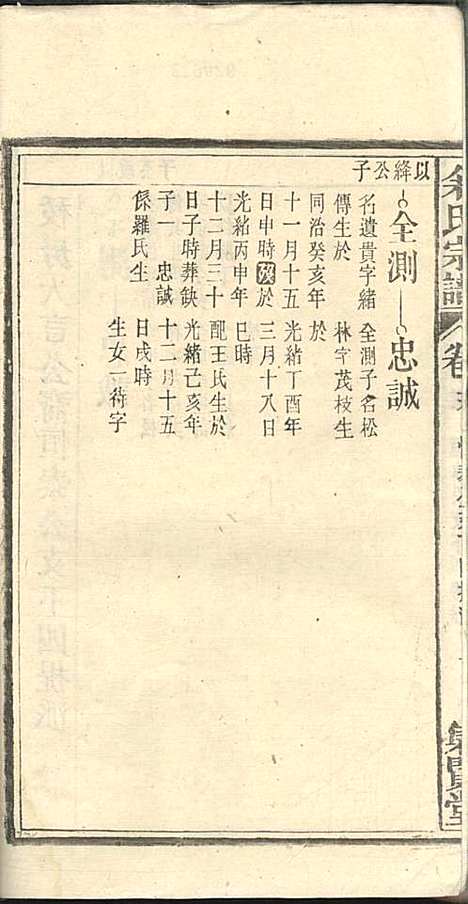 余氏宗譜 卷
集賢堂
以絳公子
全測
名遺貴字緒
傳生於
同治癸亥年
十一月十五
日申時歿於
光緒丙申年
十二月三十
日子時葬缺
子一 忠誠
係羅氏生
忠誠
全測子名松
林字茂枝生
於
光緒丁酉年
三月十八日
巳時
配王氏生於
光緒己亥年
十二月十五
日戌時
生女一待字